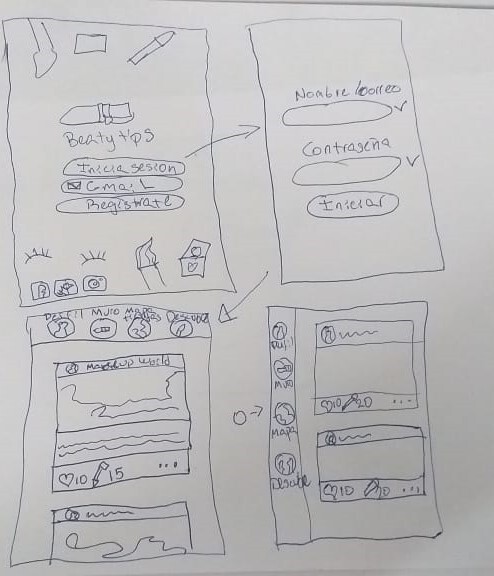 Beaty tips
Inicia sesion
Gmail
Registrate
Nombre/correo
Contraseña
Iniciar
Perfil Muro Mapa Descubre
Makeup World
10 15 ...
Perfil
Muro
Mapa
Descubre
10 20 ...
10 20 ...